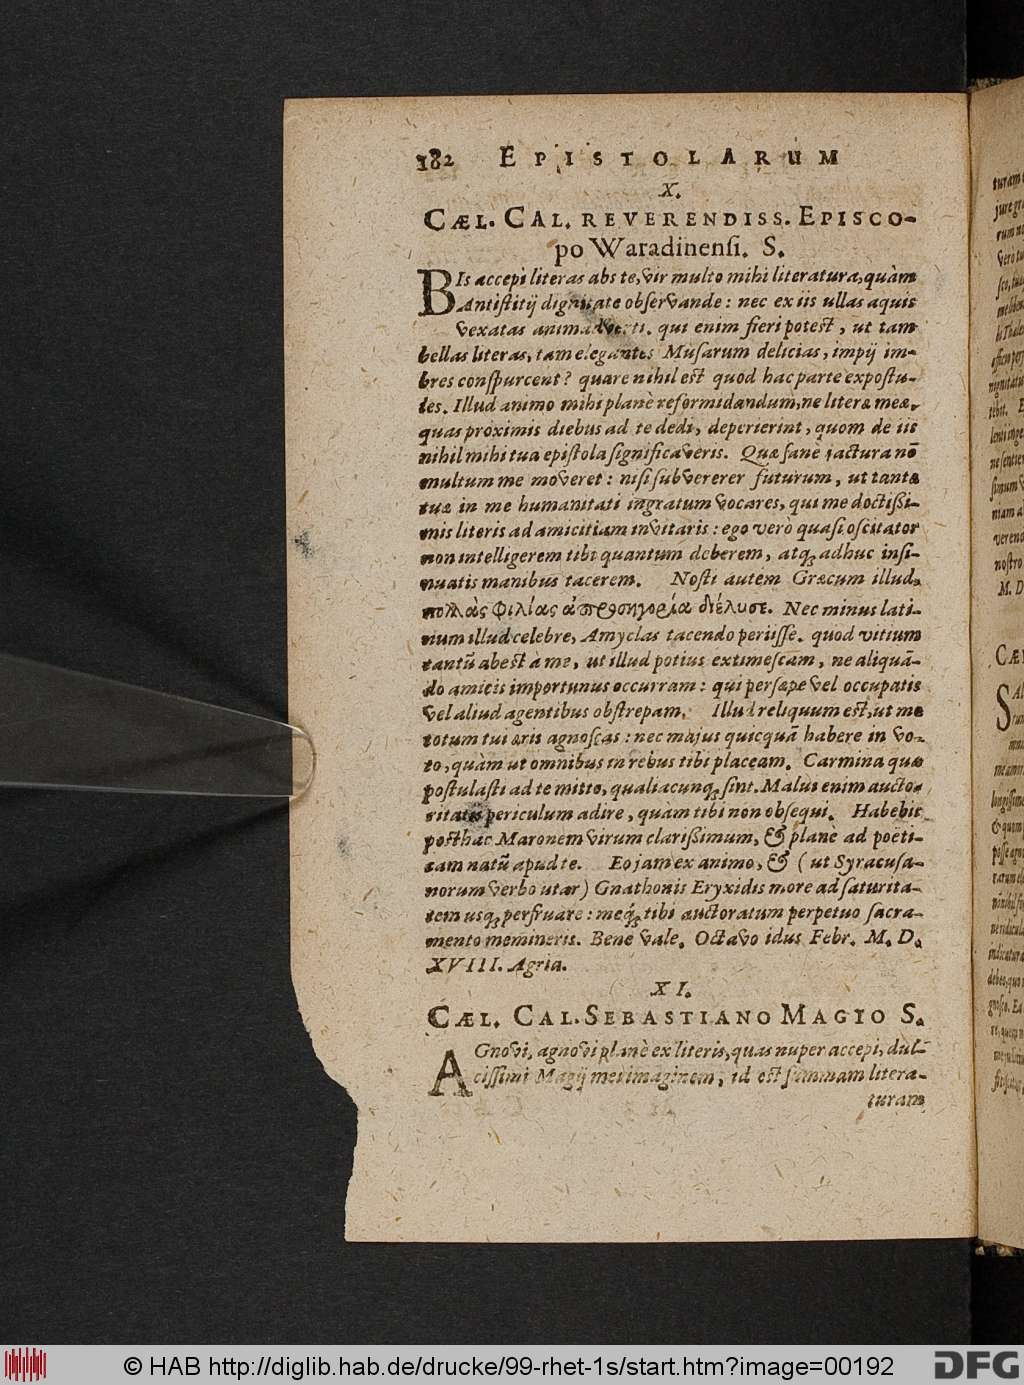 182 EPISTOLARUM
X.
CÆL. CAL. REVERENDISS. EPISCO-
po Waradinensi. S.
BIs accepi literas abs te, vir multo mihi literatura, quàm
Antistitij dignitate observande: nec ex iis ullas aquis
vexatas animadverti. qui enim fieri potest, ut tam
bellas literas, tam elegantes Musarum delicias, impij im-
bres conspurcent? quare nihil est quod hac parte expostu-
les. Illud animo mihi planè reformidandum, ne literæ meæ,
quas proximis diebus ad te dedi, deperierint, quom de iis
nihil mihi tua epistola significaveris. Quæ sanè jactura nō
multum me moveret: nisi subvererer futurum, ut tantæ
tuæ in me humanitati ingratum vocares, qui me doctißi-
mis literis ad amicitiam invitaris: ego verò quasi oscitator
non intelligerem tibi quantum deberem, atq; adhuc insi-
nuatis manibus tacerem. Nosti autem Græcum illud,
πολλὰς φιλίας ἀπροσηγορία διέλυσε. Nec minus lati-
nium illud celebre, Amyclas tacendo periisse. quod vitium
tantū abest à me, ut illud potius extimescam, ne aliquā-
do amicis importunus occurram: qui persæpe vel occupatis
vel aliud agentibus obstrepam. Illud reliquum est, ut me
totum tui æris agnoscas: nec majus quicquā habere in vo-
to, quàm ut omnibus in rebus tibi placeam. Carmina quæ
postulasti ad te mitto, qualiacunq; sint. Malui enim aucto-
ritatis periculum adire, quàm tibi non obsequi. Habebis
posthac Maronem virum clarißimum, & planè ad poëti-
cam natū apud te. Eo jam ex animo, & (ut Syracusa-
norum verbo utar) Gnathonis Eryxidis more ad saturita-
tem usq; perfruare: meq́; tibi auctoratum perpetuo sacra-
mento memineris. Bene vale. Octavo idus Febr. M. D.
XVIII. Agria.
XI.
CÆL. CAL. SEBASTIANO MAGIO S.
AGnovi, agnovi planè ex literis, quas nuper accepi, dul-
cissimi Magij mei imaginem, id est summam litera-
turam
© HAB http://diglib.hab.de/drucke/99-rhet-1s/start.htm?image=00192
DFG